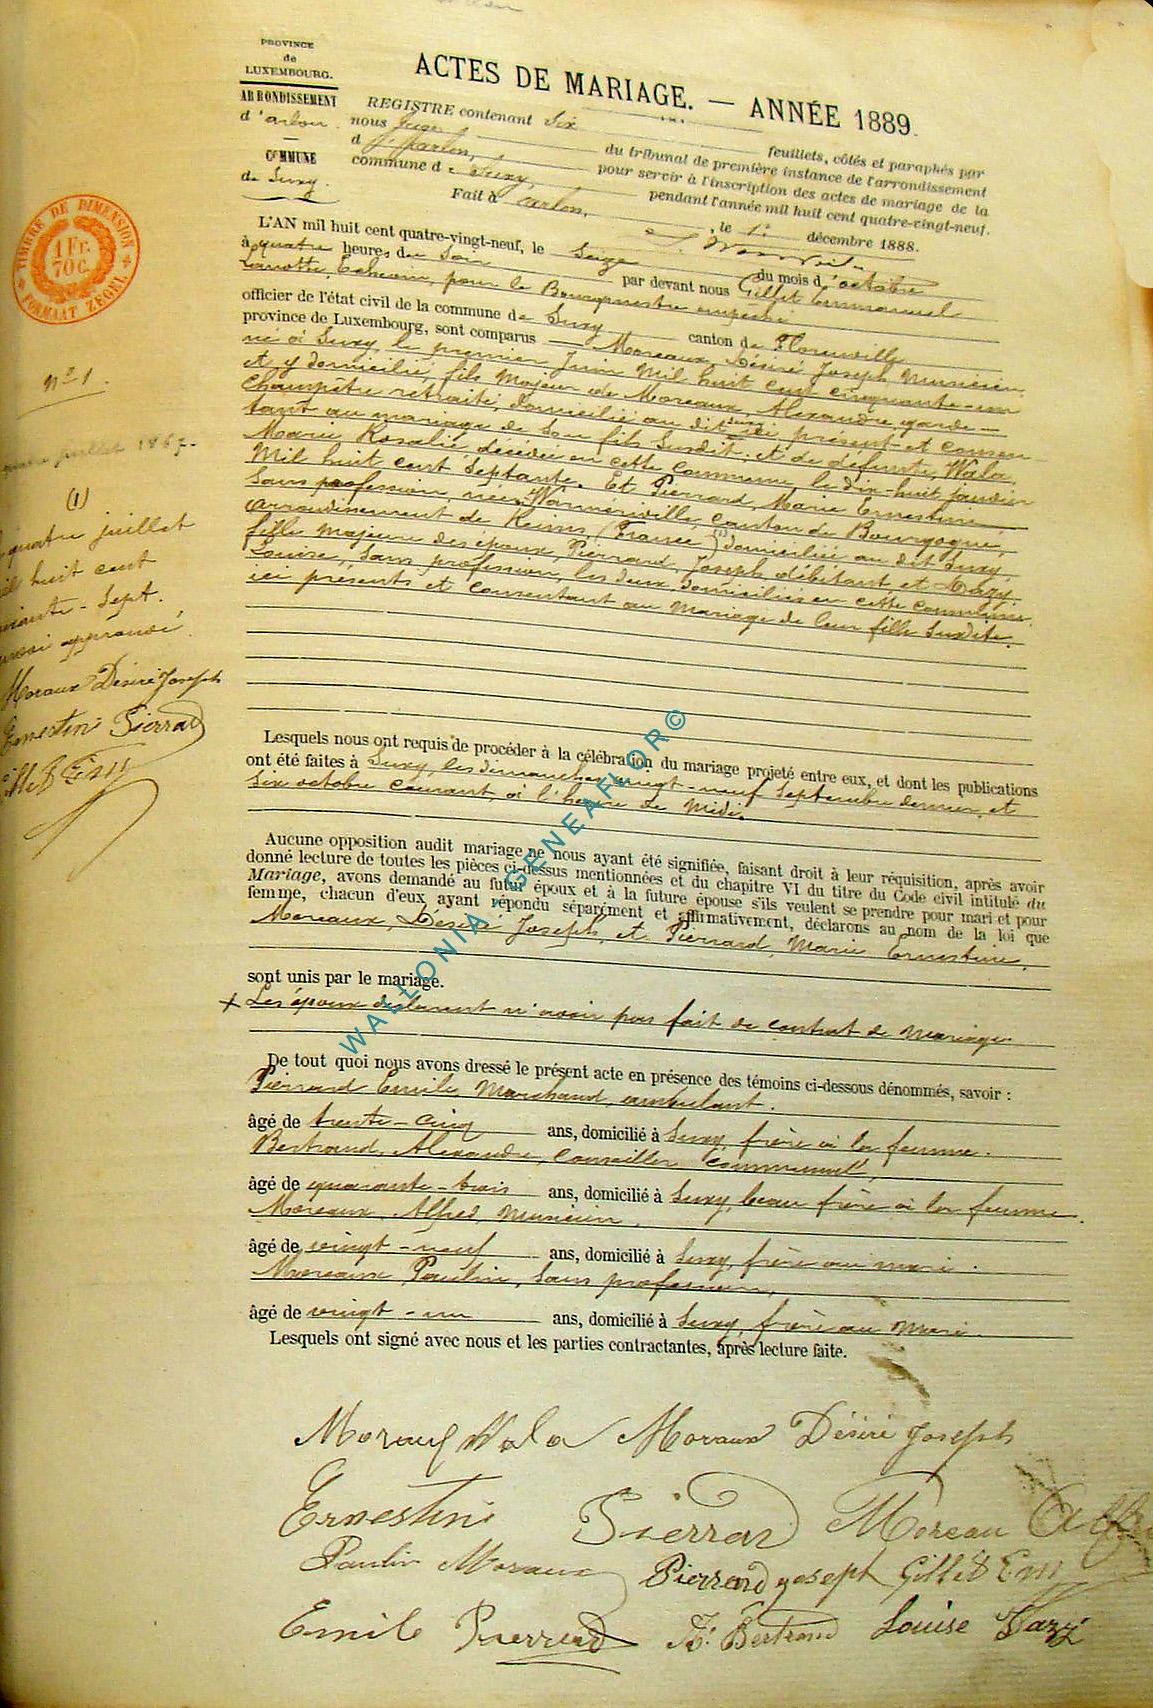 PROVINCE
de
LUXEMBOURG.
ARRONDISSEMENT
d'arlon.
COMMUNE
de Suxy.
ACTES DE MARIAGE. — ANNÉE 1889.
REGISTRE contenant Six feuillets, côtés et paraphés par
nous Juge du tribunal de première instance de l'arrondissement
d'Arlon, pour servir à l'inscription des actes de mariage de la
commune de Suxy, pendant l'année mil huit cent quatre-vingt-neuf.
Fait à arlon, , le 1er décembre 1888.
TIMBRE DE DIMENSION
1 Fr.
70 C.
FORMAAT ZEGEL
L'AN mil huit cent quatre-vingt-neuf, le Seize du mois d'octobre
à quatre heures du Soir par devant nous Gillet Emmanuel
Echevin, pour le Bourgmestre empeché
officier de l'état civil de la commune de Suxy canton de Florenville
province de Luxembourg, sont comparus — Moreaux, Désiré Joseph musicien
né à Suxy, le premier Juin mil huit cent cinquante-un
et y domicilié, fils majeur de Moreaux, Alexandre garde-
Champêtre retraité, domicilié au dit Suxy ici présent et consen
tant au mariage de Son fils Susdit; et de défunte, Wala,
Marie Rosalie, décédée en cette commune, le dix-huit Janvier
mil huit cent Septante. Et Pierrard, Marie Ernestine
Sans profession, née à Warmeriville, canton de Bourgogne,
arrondissement de Reims (France) (1) domiciliée au dit Suxy,
fille majeure des époux, Pierrard, Joseph, débitant et Lazy
Louise, Sans profession, les deux domiciliés en cette commune,
ici présents et consentant au mariage de leur fille Susdite.
nº 1.
juillet 1867.
(1)
quatre juillet
mil huit cent
soixante-Sept.
approuvé
Moraux Désiré Joseph
Ernestin Pierrard
Gillet Em
Lesquels nous ont requis de procéder à la célébration du mariage projeté entre eux, et dont les publications
ont été faites à Suxy, les dimanches vingt-neuf Septembre dernier, et
Six octobre courant, à l'heure de midi.
Aucune opposition audit mariage ne nous ayant été signifiée, faisant droit à leur réquisition, après avoir
donné lecture de toutes les pièces ci-dessus mentionnées et du chapitre VI du titre du Code civil intitulé du
Mariage, avons demandé au futur époux et à la future épouse s'ils veulent se prendre pour mari et pour
femme, chacun d'eux ayant répondu séparément et affirmativement, déclarons au nom de la loi que
Moreaux, Désiré Joseph, et Pierrard, Marie Ernestine,
sont unis par le mariage.
x Les époux declarent n'avoir pas fait de contrat de mariage
De tout quoi nous avons dressé le présent acte en présence des témoins ci-dessous dénommés, savoir :
Pierrard Emile, Marchand ambulant.
âgé de trente-cinq ans, domicilié à Suxy, frère à la femme.
Bertrand, Alexandre, Conseiller Communal,
âgé de quarante-trois ans, domicilié à Suxy, beau frère à la femme.
Moreaux, Alfred, musicien.
âgé de vingt-neuf ans, domicilié à Suxy, frère au mari.
Moreaux, Paulin, Sans profession,
âgé de vingt-un ans, domicilié à Suxy, frère au mari.
Lesquels ont signé avec nous et les parties contractantes, après lecture faite.
Moraux Wala Moraux Désiré Joseph
Ernestine Pierrard Moreau Alfred
Paulin Moraux Pierrard Josept Gillet Em
Emile Pierrard Al Bertrand Louise Lazy
WALLONIA GENEAFLOR©